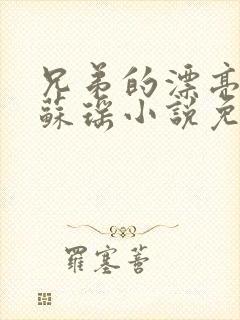 兄弟的漂亮
蘇瑤小說免
羅塞菩